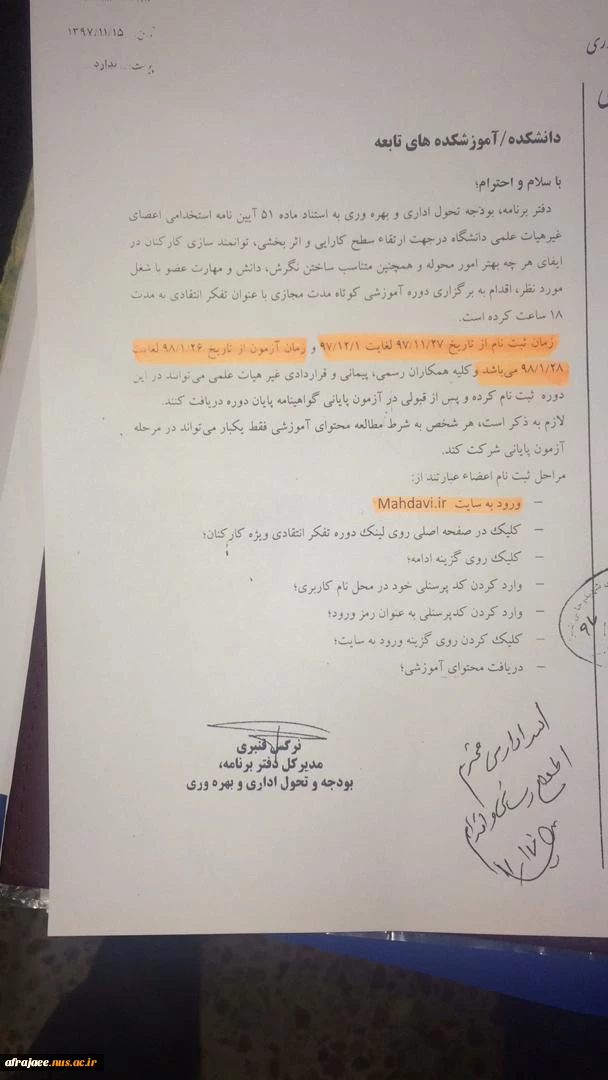 ۱۳۹۷/۱۱/۱۵
ندارد
دانشکده/آموزشکده های تابعه
با سلام و احترام؛
دفتر برنامه، بودجه تحول اداری و بهره وری به استناد ماده ۵۱ آیین نامه استخدامی اعضای
غیرهیات علمی دانشگاه درجهت ارتقاء سطح کارایی و اثر بخشی، توانمند سازی کارکنان در
ایفای هر چه بهتر امور محوله و همچنین متناسب ساختن نگرش، دانش و مهارت عضو با شغل
مورد نظر، اقدام به برگزاری دوره آموزشی کوتاه مدت مجازی با عنوان تفکر انتقادی به مدت
۱۸ ساعت کرده است.
زمان ثبت نام از تاریخ ۹۷/۱۱/۲۷ لغایت ۹۷/۱۲/۱ و زمان آزمون از تاریخ ۹۸/۱/۲۶ لغایت
۹۸/۱/۲۸ می‌باشد وکلیه همکاران رسمی، پیمانی و قراردادی غیر هیات علمی می‌توانند در این
دوره ثبت نام کرده و پس از قبولی در آزمون پایانی گواهینامه پایان دوره دریافت کنند.
لازم به ذکر است، هر شخص به شرط مطالعه محتوای آموزشی فقط یکبار می‌تواند در مرحله
آزمون پایانی شرکت کند.
مراحل ثبت نام اعضاء عبارتند از:
– ورود به سایت Mahdavi.ir
– کلیک در صفحه اصلی روی لینک دوره تفکر انتقادی ویژه کارکنان؛
– کلیک روی گزینه ادامه؛
– وارد کردن کد پرسنلی خود در محل نام کاربری؛
– وارد کردن کدپرسنلی به عنوان رمز ورود؛
– کلیک کردن روی گزینه ورود به سایت؛
– دریافت محتوای آموزشی؛
نرگس قنبری
مدیرکل دفتر برنامه،
بودجه و تحول اداری و بهره وری
afrajaee.nus.ac.ir